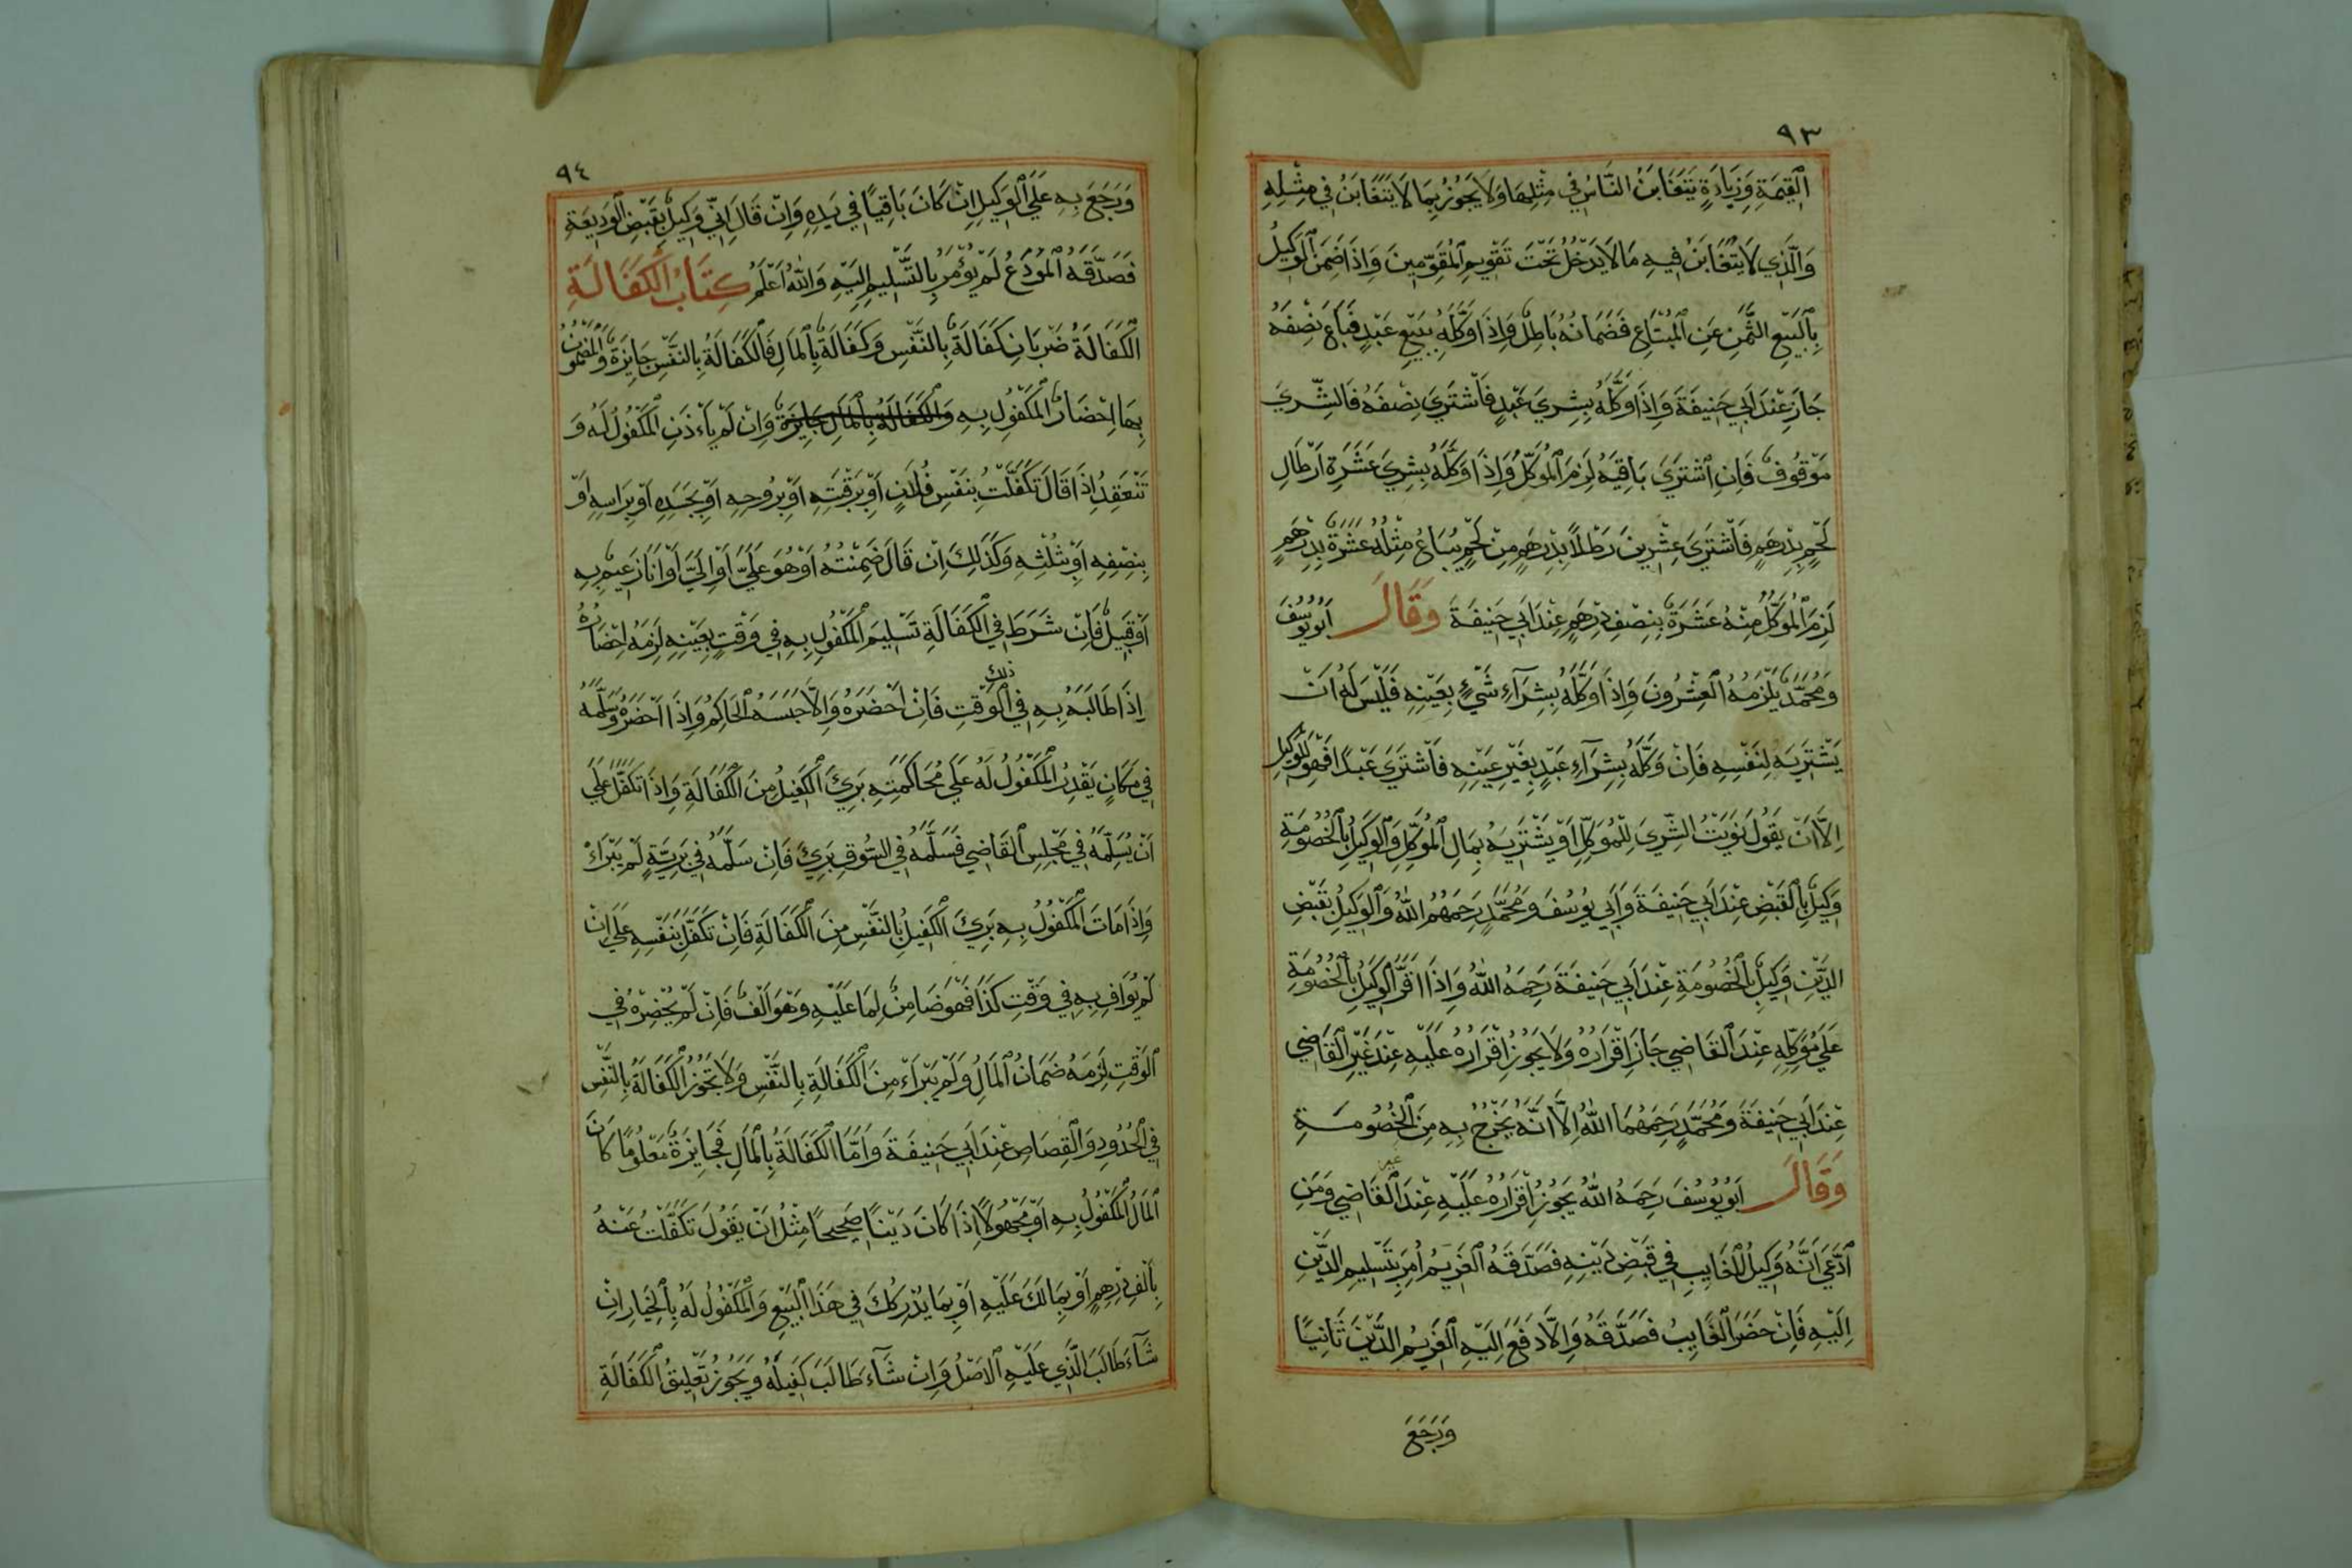 ٩٣
القِيمَةِ وَزِيَادَةٍ يَتَغَابَنُ النَّاسُ فِي مِثْلِهَا وَلَا يَجُوزُ بِمَا لَا يَتَغَابَنُ فِي مِثْلِهِ
وَالَّذِي لَا يُتَغَابَنُ فِيهِ مَا لَا يَدْخُلُ تَحْتَ تَقْوِيمِ الْمُقَوِّمِينَ وَاِذَا ضَمِنَ الْوَكِيلُ
بِالْبَيْعِ الثَّمَنَ عَنِ الْمُبْتَاعِ فَضَمَانُهُ بَاطِلٌ وَاِذَا وَكَّلَهُ بِبَيْعِ عَبْدٍ فَبَاعَ نِصْفَهُ
جَازَ عِنْدَ اَبِي حَنِيفَةَ وَاِذَا وَكَّلَهُ بِشِرَي عَبْدٍ فَاشْتَرَي نِصْفَهُ فَالشِّرَي
مَوْقُوفٌ فَاِنِ اشْتَرَي بَاقِيَهُ لَزِمَ الْمُوَكِّلَ وَاِذَا وَكَّلَهُ بِشِرَي عَشَرَةِ اَرْطَالِ
لَحْمٍ بِدِرْهَمٍ فَاشْتَرَي عِشْرِينَ رَطْلًا بِدِرْهَمٍ مِنْ لَحْمٍ يُبَاعُ مِثْلُهُ عَشَرَةٌ بِدِرْهَمٍ
لَزِمَ الْمُوَكِّلَ مِنْهُ عَشَرَةٌ بِنِصْفِ دِرْهَمٍ عِنْدَ اَبِي حَنِيفَةَ وَقَالَ اَبُو يُوسُفَ
وَمُحَمَّدٌ يَلْزَمُهُ الْعِشْرُونَ وَاِذَا وَكَّلَهُ بِشِرَآءِ شَيْءٍ بِعَيْنِهِ فَلَيْسَ لَهُ اَنْ
يَشْتَرِيَهُ لِنَفْسِهِ فَاِنْ وَكَّلَهُ بِشِرَآءِ عَبْدٍ بِغَيْرِ عَيْنِهِ فَاشْتَرَي عَبْدًا فَهُوَ لِلْوَكِيلِ
اِلَّا اَنْ يَقُولَ نَوَيْتُ الشِّرَيَ لِلْمُوَكِّلِ اَوْ يَشْتَرِيَهُ بِمَالِ الْمُوَكِّلِ وَالْوَكِيلُ بِالْخُصُومَةِ
وَكِيلٌ بِالْقَبْضِ عِنْدَ اَبِي حَنِيفَةَ وَاَبِي يُوسُفَ وَمُحَمَّدٍ رَحِمَهُمُ اللّٰهُ وَالْوَكِيلُ بِقَبْضِ
الدَّيْنِ وَكِيلٌ بِالْخُصُومَةِ عِنْدَ اَبِي حَنِيفَةَ رَحِمَهُ اللّٰهُ وَاِذَا اَقَرَّ الْوَكِيلُ بِالْخُصُومَةِ
عَلَي مُوَكِّلِهِ عِنْدَ الْقَاضِي جَازَ اِقْرَارُهُ وَلَا يَجُوزُ اِقْرَارُهُ عَلَيْهِ عِنْدَ غَيْرِ الْقَاضِي
عِنْدَ اَبِي حَنِيفَةَ وَمُحَمَّدٍ رَحِمَهُمَا اللّٰهُ اِلَّا اَنَّهُ يَخْرُجُ بِهِ مِنَ الْخُصُومَةِ
وَقَالَ اَبُو يُوسُفَ رَحِمَهُ اللّٰهُ يَجُوزُ اِقْرَارُهُ عَلَيْهِ عِنْدَ غير الْقَاضِي وَمَنِ
ادَّعَي اَنَّهُ وَكِيلُ الْغَايِبِ فِي قَبْضِ دَيْنِهِ فَصَدَّقَهُ الْغَرِيمُ اُمِرَ بِتَسْلِيمِ الدَّيْنِ
اِلَيْهِ فَاِنْ حَضَرَ الْغَايِبُ فَصَدَّقَهُ وَاِلَّا دَفَعَ اِلَيْهِ الْغَرِيمُ الدَّيْنَ ثَانِيًا
وَرَجَعَ
٩٤
وَرَجَعَ بِهِ عَلَي الْوَكِيلِ اِنْ كَانَ بَاقِيًا فِي يَدِهِ وَاِنْ قَالَ اِنِّي وَكِيلٌ بِقَبْضِ الْوَدِيعَةِ
فَصَدَّقَهُ الْمُودَعُ لَمْ يُؤْمَرْ بِالتَّسْلِيمِ اِلَيْهِ وَاللّٰهُ اَعْلَمُ كِتَابُ الْكَفَالَةِ
الْكَفَالَةُ ضَرْبَانِ كَفَالَةٌ بِالنَّفْسِ وَكَفَالَةٌ بِالْمَالِ فَالْكَفَالَةُ بِالنَّفْسِ جَايِزَةٌ وَالْمَضْمُونُ
بِهَا اِحْضَارُ الْمَكْفُولِ بِهِ وَالْكَفَالَةُ بِالْمَالِ جَايِزَةٌ وَاِنْ لَمْ يَاْذَنِ الْمَكْفُولُ لَهُ وَ
تَنْعَقِدُ اِذَا قَالَ تَكَفَّلْتُ بِنَفْسِ فُلَانٍ اَوْ بِرَقَبَتِهِ اَوْ بِرُوحِهِ اَوْ بِجَسَدِهِ اَوْ بِرَاسِهِ اَوْ
بِنِصْفِهِ اَوْ بِثُلُثِهِ وَكَذَلِكَ اِنْ قَالَ ضَمِنْتُهُ اَوْ هُوَ عَلَيَّ اَوْ اِلَيَّ اَوْ اَنَا زَعِيمٌ بِهِ
اَوْ قَبِيلٌ فَاِنْ شَرَطَ فِي الْكَفَالَةِ تَسْلِيمَ الْمَكْفُولِ بِهِ فِي وَقْتٍ بِعَيْنِهِ لَزِمَهُ اِحْضَارُهُ
اِذَا طَالَبَهُ بِهِ فِي ذلك الْوَقْتِ فَاِنْ اَحْضَرَهُ وَاِلَّا حَبَسَهُ الْحَاكِمُ وَاِذَا اَحْضَرَهُ وَسَلَّمَهُ
فِي مَكَانٍ يَقْدِرُ الْمَكْفُولُ لَهُ عَلَي مُحَاكَمَتِهِ بَرِئَ الْكَفِيلُ مِنَ الْكَفَالَةِ وَاِذَا تَكَفَّلَ عَلَي
اَنْ يُسَلِّمَهُ فِي مَجْلِسِ الْقَاضِي فَسَلَّمَهُ فِي السُّوقِ بَرِئَ فَاِنْ سَلَّمَهُ فِي بَرِيَّةٍ لَمْ يَبْرَاْ
وَاِذَا مَاتَ الْمَكْفُولُ بِهِ بَرِئَ الْكَفِيلُ بِالنَّفْسِ مِنَ الْكَفَالَةِ فَاِنْ تَكَفَّلَ بِنَفْسِهِ عَلَي اَنْ
لَمْ يُوَافِ بِهِ فِي وَقْتِ كَذَا فَهُوَ ضَامِنٌ لِمَا عَلَيْهِ وَهُوَ اَلْفٌ فَاِنْ لَمْ يُحْضِرْهُ فِي
الْوَقْتِ لَزِمَهُ ضَمَانُ الْمَالِ وَلَمْ يَبْرَاْ مِنَ الْكَفَالَةِ بِالنَّفْسِ وَلَا تَجُوزُ الْكَفَالَةُ بِالنَّفْسِ
فِي الْحُدُودِ وَالْقِصَاصِ عِنْدَ اَبِي حَنِيفَةَ وَاَمَّا الْكَفَالَةُ بِالْمَالِ فَجَايِزَةٌ مَعْلُومًا كَانَ
الْمَالُ الْمَكْفُولُ بِهِ اَوْ مَجْهُولًا اِذَا كَانَ دَيْنًا صَحِيحًا مِثْلُ اَنْ يَقُولَ تَكَفَّلْتُ عَنْهُ
بِاَلْفِ دِرْهِمٍ اَوْ بِمَا لَكَ عَلَيْهِ اَوْ بِمَا يُدْرِكُكَ فِي هَذَا الْبَيْعِ وَالْمَكْفُولُ لَهُ بِالْخِيَارِ اِنْ
شَآءَ طَالَبَ الَّذِي عَلَيْهِ الْاَصْلُ وَاِنْ شَآءَ طَالَبَ كَفِيلَهُ وَيَجُوزُ تَعْلِيقُ الْكَفَالَةِ